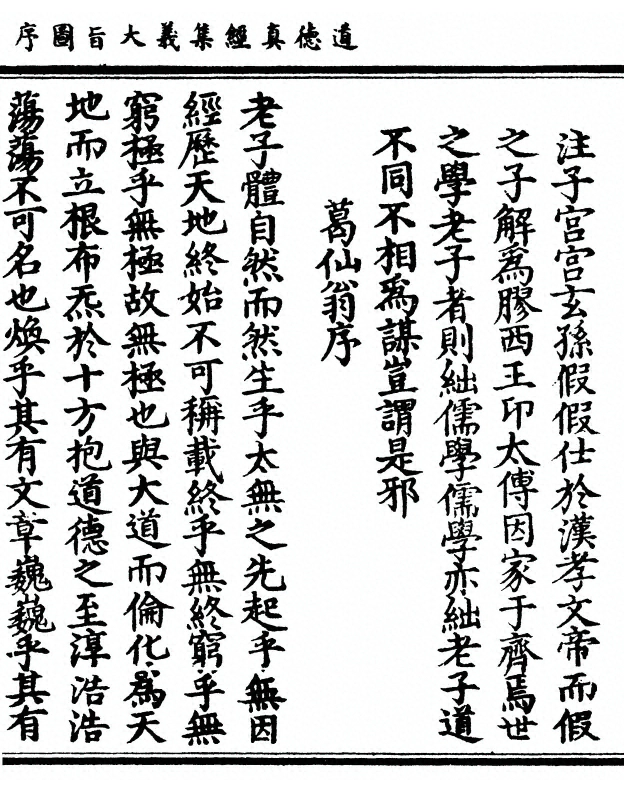 道德真經集義大旨圖序
注子宮宮玄孫假假仕於漢孝文帝而假
之子解為膠西王卬太傅因家于齊焉世
之學老子者則絀儒學儒學亦絀老子道
不同不相為謀豈謂是邪
葛仙翁序
老子體自然而然生乎太無之先起乎無因
經歷天地終始不可稱載終乎無終窮乎無
窮極乎無極故無極也與大道而倫化為天
地而立根布炁於十方抱道德之至淳浩浩
蕩蕩不可名也煥乎其有文章巍巍乎其有